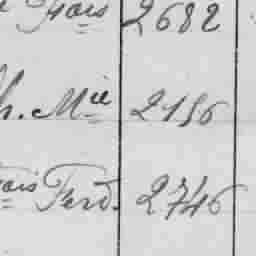 Fçois 2682
h. Mie 2156
çois Ferd. 2746